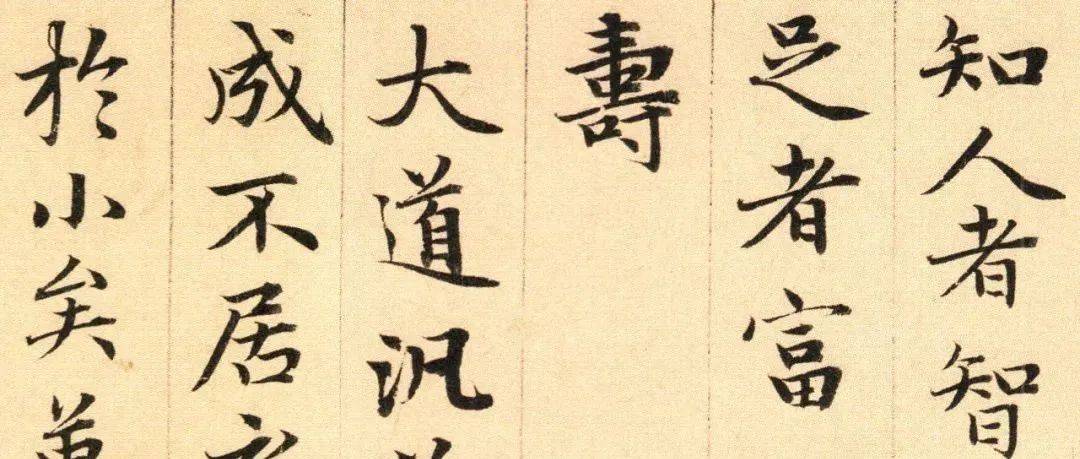 知人者智
足者富
壽
大道汎
成不居衣
於小矣萬